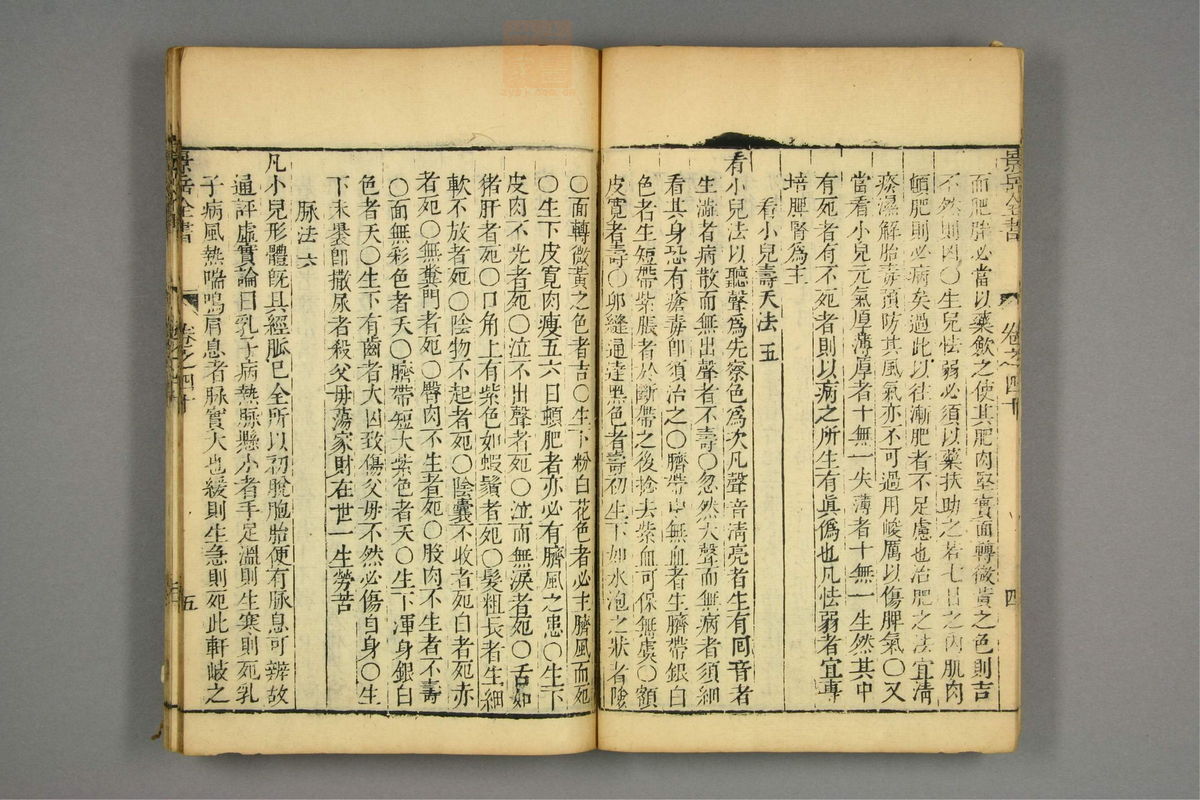 景岳全書 卷之四十 四
而肥胖必當以藥飲之使其肥肉堅實面轉微黃之色則吉
不然則凶○生兒怯弱必須以藥扶助之若七日之內肌肉
頓肥則必病矣過此以往漸肥者不足慮也治肥之法宜清
痰濕解胎毒預防其風氣亦不可過用峻厲以傷脾氣○又
當看小兒元氣厚薄厚者十無一失薄者十無一生然其中
有死者有不死者則以病之所生有眞僞也凡怯弱者宜專
培脾腎爲主
看小兒壽夭法 五
看小兒法以聽聲爲先察色爲次凡聲音淸亮者生有回音者
生澁者病散而無出聲者不壽○忽然大聲而無病者須細
看其身恐有瘡毒卽須治之○臍帶中無血者生臍帶銀白
色者生短帶紫脹者於斷帶之後捻去紫血可保無虞○額
皮寬者壽○卵縫通達黑色者壽初生下如水泡之狀者險
○面轉微黃之色者吉○生下粉白花色者必主臍風而死
○生下皮寬肉瘦五六日頓肥者亦必有臍風之患○生下
皮肉不光者死○泣不出聲者死○泣而無淚者死○舌如
猪肝者死○口角上有紫色如蝦鬚者死○髮粗長者生細
軟不放者死○陰物不起者死○陰囊不收者死白者死赤
者死○無糞門者死○臀肉不生者死○股肉不生者不壽
○面無彩色者夭○臍帶短大紫色者夭○生下渾身銀白
色者夭○生下有齒者大凶致傷父母不然必傷自身○生
下未裹卽撒尿者殺父母蕩家財在世一生勞苦
脉法 六
凡小兒形體旣具經脉已全所以初脫胞胎便有脉息可辨故
通評虛實論曰乳子病熱脉懸小者手足溫則生寒則死乳
子病風熱喘鳴肩息者脉實大也緩則生急則死此軒岐之
景岳全書 卷之四十 五